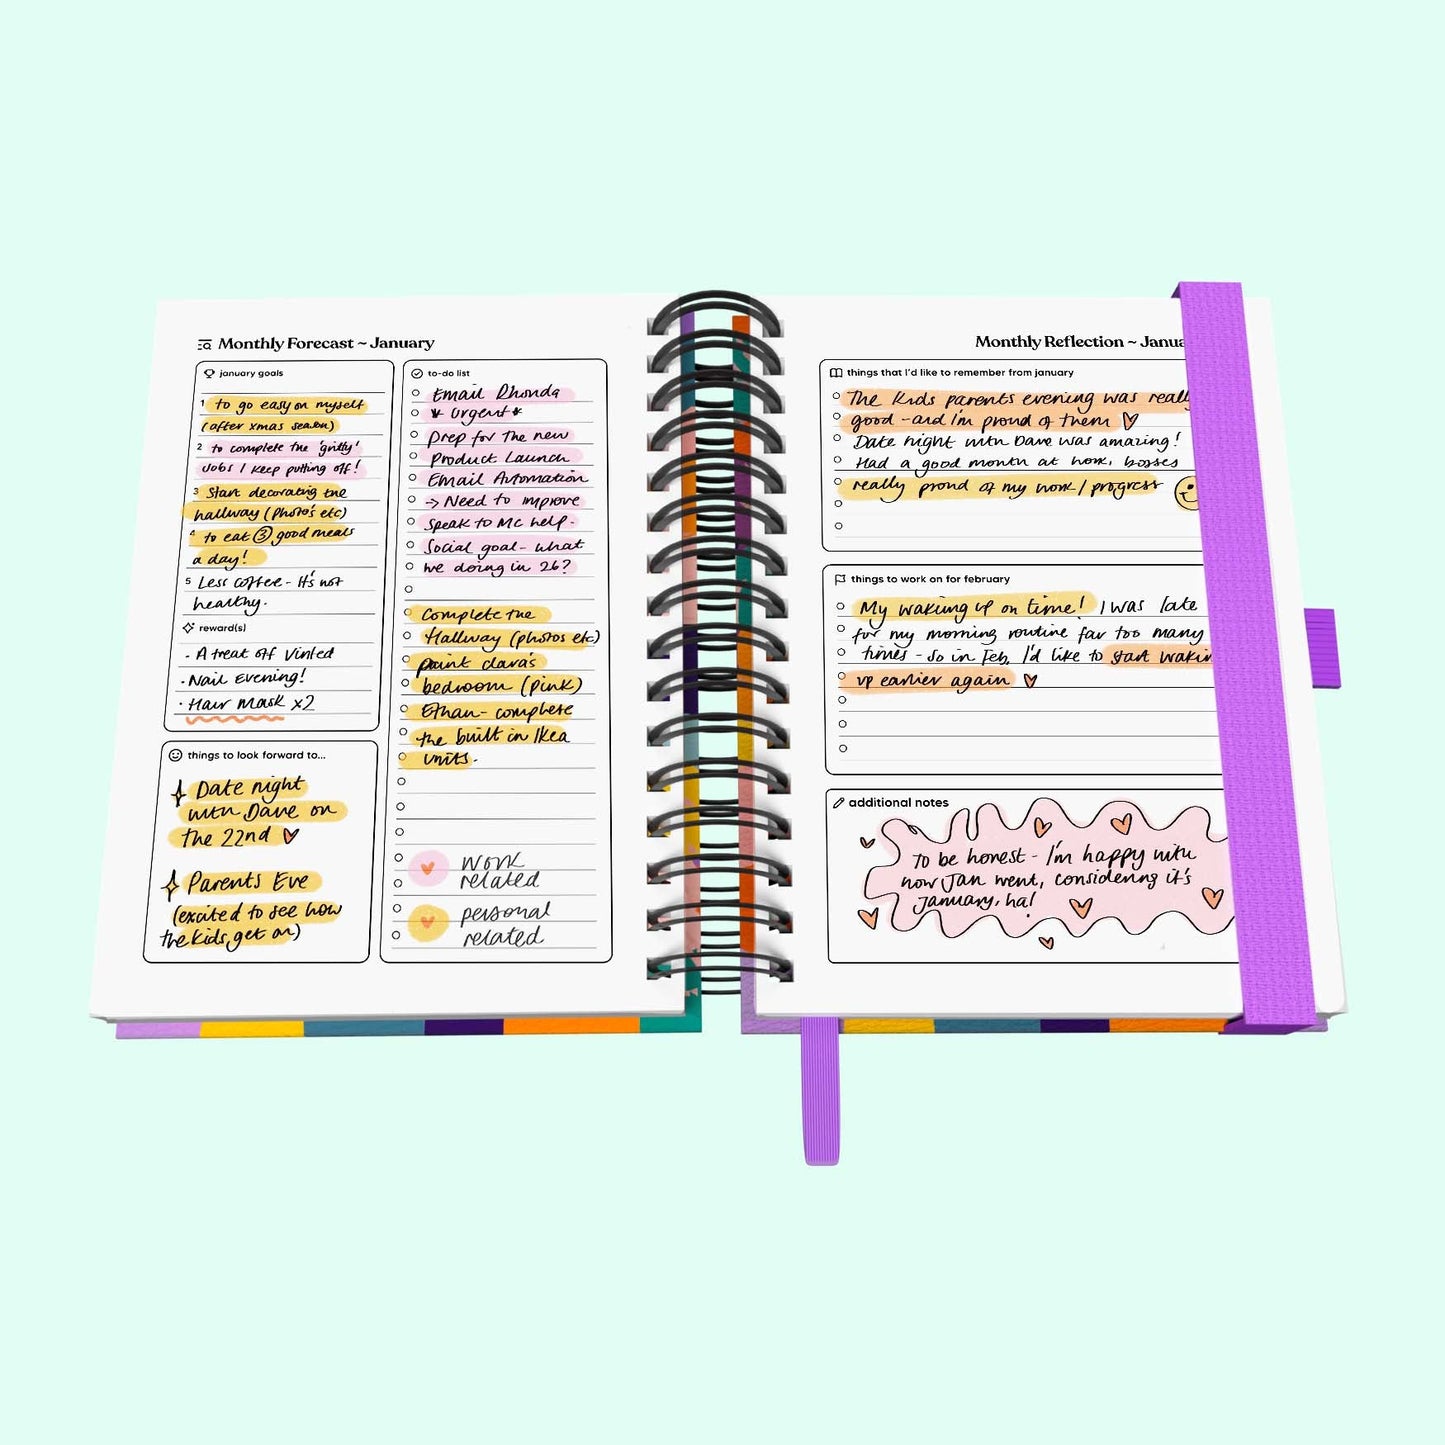 Monthly Forecast ~ January
january goals
1 to go easy on myself
(after xmas season)
2 to complete the 'gritty'
jobs I keep putting off!
3 Start decorating the
hallway (photo's etc)
4 to eat ③ good meals
a day!
5 Less coffee - It's not
healthy.
reward(s)
· A treat off Vinted
· Nail Evening!
· Hair Mask x2
things to look forward to...
Date night
with Dave on
the 22nd
Parents Eve
(excited to see how
the kids get on)
to-do list
Email Rhonda
* Urgent *
Prep for the new
Product Launch
Email Automation
→ Need to improve
Speak to MC help.
Social goal - what
we doing in 26?
Complete the
Hallway (photos etc)
paint clara's
bedroom (pink)
Ethan - complete
the built in Ikea
units.
work
related
personal
related
Monthly Reflection ~ Janua
things that I'd like to remember from january
The kids parents evening was really
good - and I'm proud of them
Date night with Dave was amazing!
Had a good month at work, bosses
really proud of my work / progress
things to work on for february
My waking up on time! I was late
for my morning routine far too many
times - so in Feb, I'd like to start wakin
up earlier again
additional notes
To be honest - I'm happy with
how Jan went, considering it's
January, ha!